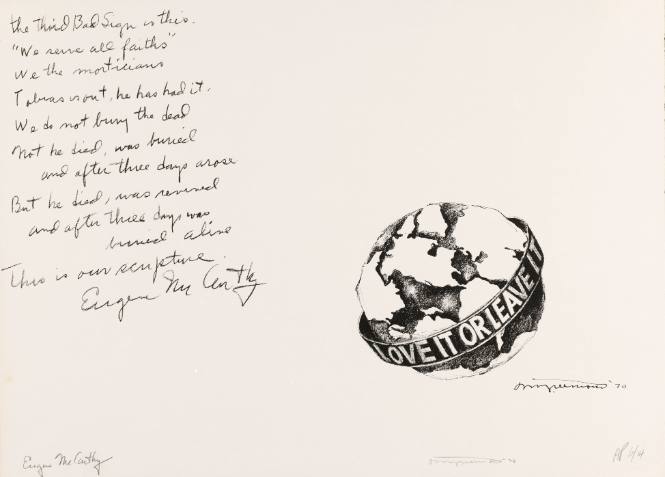 the Third Bad Sign is this.
"We serve all faiths"
We the morticians
Tobias is out, he has had it.
We do not bury the dead
Not he died, was buried
and after three days arose
But he died, was revived
and after three days was
buried alive
This is our scripture.
Eugene McCarthy
LOVE IT OR LEAVE IT
'70
Eugene McCarthy